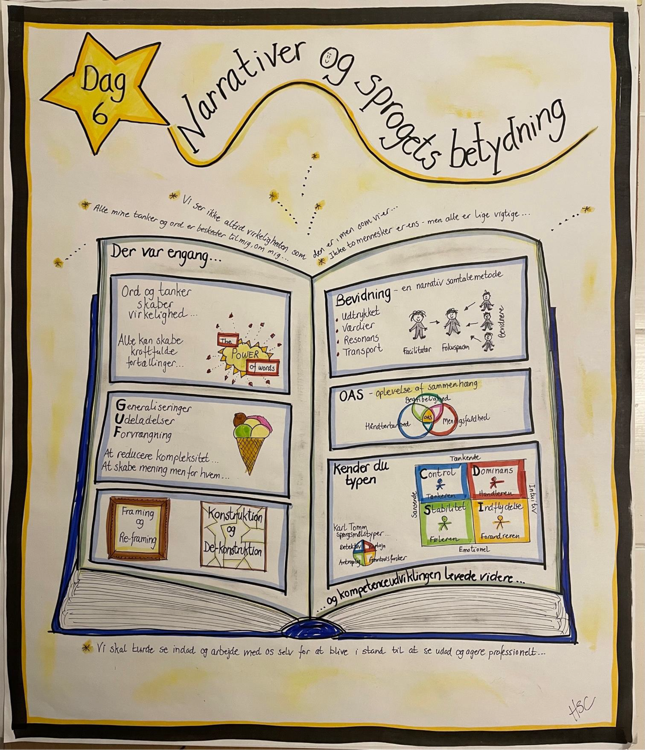 Dag
6
Narrativer og sprogets betydning
Vi ser ikke altid virkeligheden som den er, men som vi er...
Alle mine tanker og ord er beskeder til mig, om mig...
Ikke to mennesker er ens - men alle er lige vigtige...
Der var engang...
Ord og tanker
skaber
virkelighed...
Alle kan skabe
kraftfulde
fortællinger...
The
POWER
of words
Generaliseringer
Udeladelser
Forvrængning
At reducere kompleksitet...
At skabe mening men for hvem...
Framing
og
Re-framing
Konstruktion
og
De-konstruktion
Bevidning - en narrativ samtalemetode
Udtrykket
Værdier
Resonans
Transport
Facilitator
Fokusperson
Bevidnere
OAS - oplevelse af sammenhæng
Begribelighed
Håndterbarhed
OAS
Meningsfuldhed
Kender du
typen
Tænkende
Control
Tænkeren
Dominans
Handleren
Sansende
Intuitiv
Stabilitet
Føleren
Indflydelse
Forandreren
Emotionel
Karl Tomm
spørgsmålstyper...
Detektiv
Antropolog
Fremtidsforsker
...og kompetenceudviklingen levede videre...
Vi skal turde se indad og arbejde med os selv for at blive i stand til at se udad og agere professionelt...
HSC